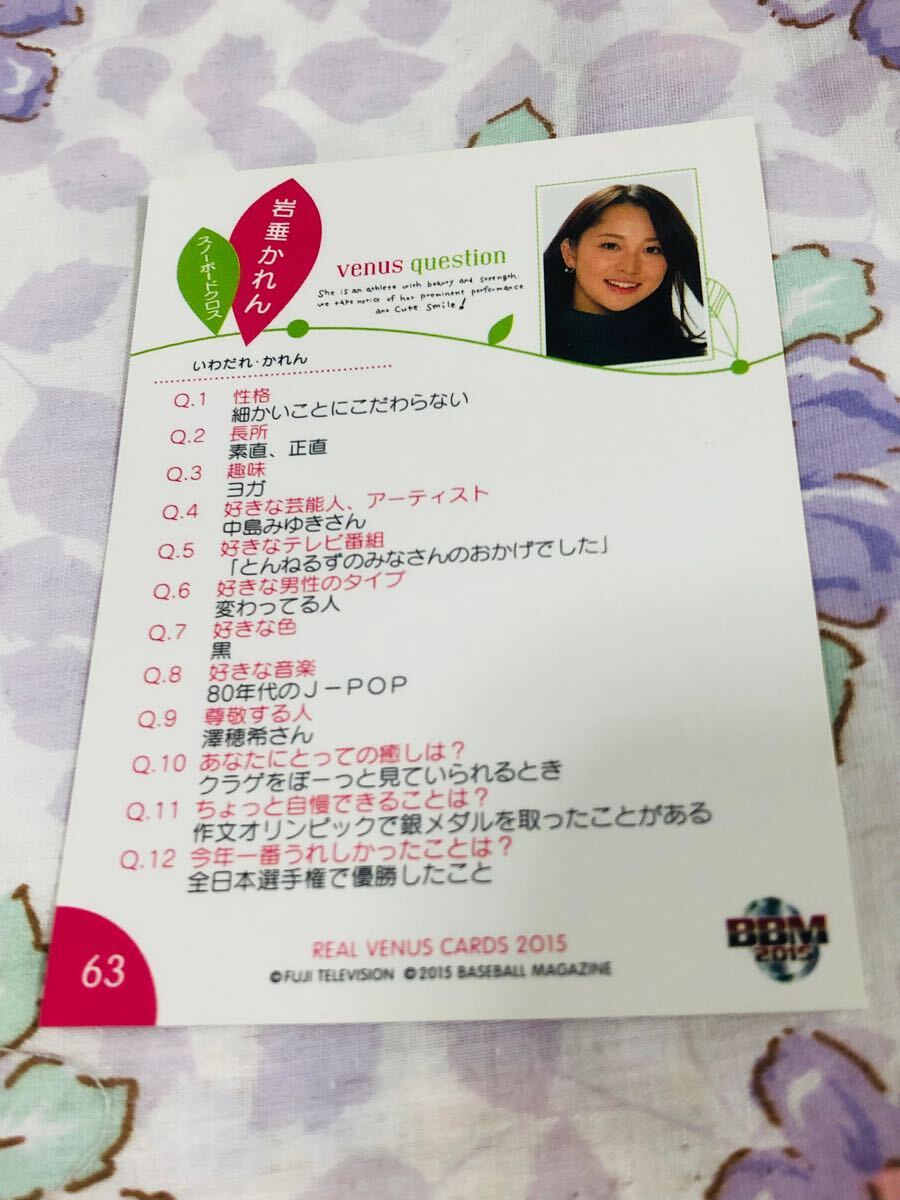 岩垂かれん
スノーボードクロス
venus question
She is an athlete with beauty and strength.
we take notice of her prominent performance
and cute smile!
いわだれ・かれん
Q.1 性格
細かいことにこだわらない
Q.2 長所
素直、正直
Q.3 趣味
ヨガ
Q.4 好きな芸能人、アーティスト
中島みゆきさん
Q.5 好きなテレビ番組
「とんねるずのみなさんのおかげでした」
Q.6 好きな男性のタイプ
変わってる人
Q.7 好きな色
黒
Q.8 好きな音楽
80年代のJ-POP
Q.9 尊敬する人
澤穂希さん
Q.10 あなたにとっての癒しは?
クラゲをぼーっと見ていられるとき
Q.11 ちょっと自慢できることは?
作文オリンピックで銀メダルを取ったことがある
Q.12 今年一番うれしかったことは?
全日本選手権で優勝したこと
63
REAL VENUS CARDS 2015
©FUJI TELEVISION ©2015 BASEBALL MAGAZINE
BBM
2015